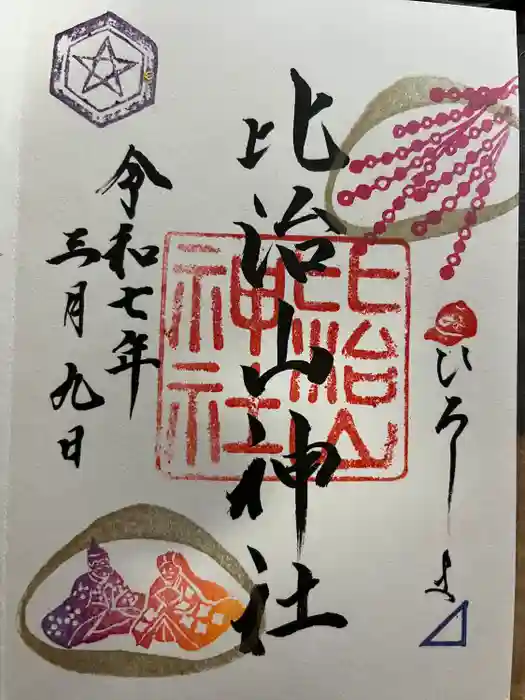 ひろしま
比治山神社
比治山
神社
令和七年
三月九日